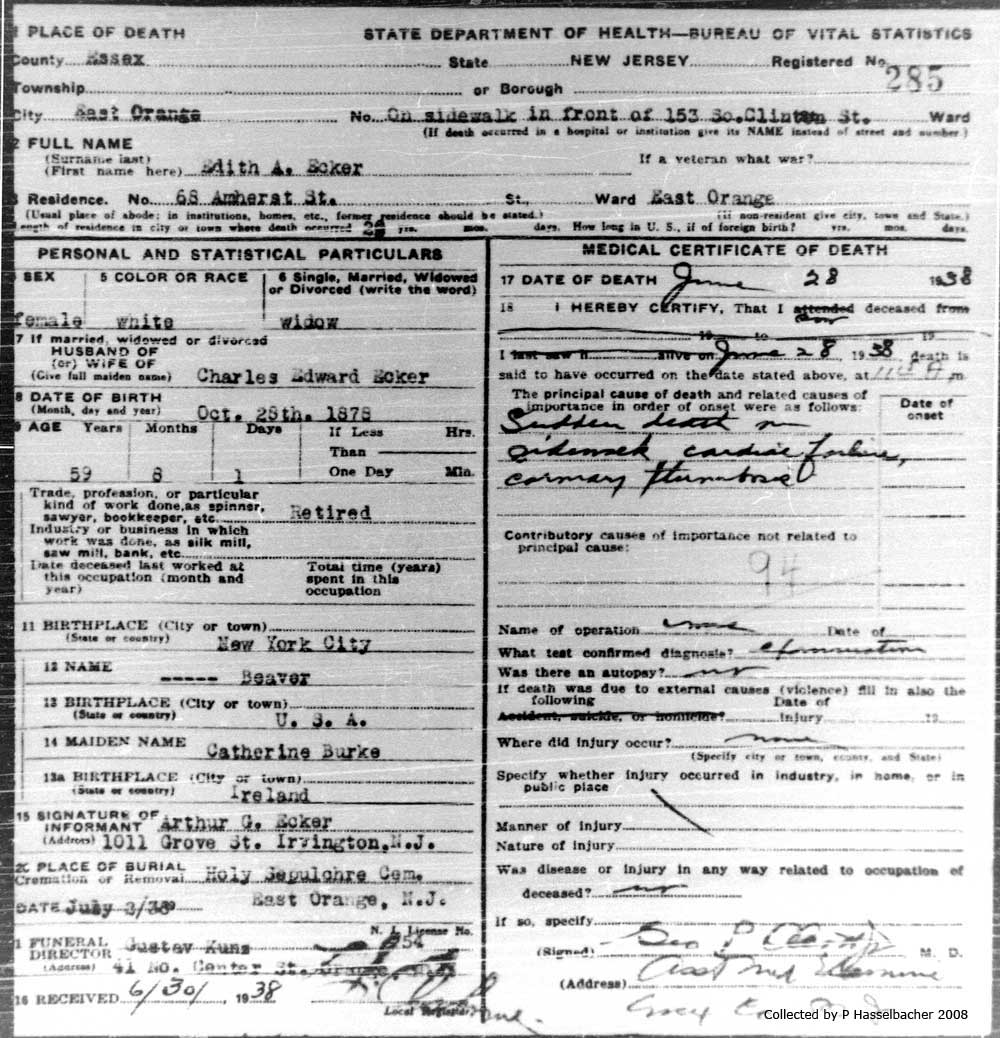 1 PLACE OF DEATH STATE DEPARTMENT OF HEALTH—BUREAU OF VITAL STATISTICS
County Essex State NEW JERSEY Registered No. 285
Township or Borough
City East Orange No. On sidewalk in front of 153 So.Clinton St. Ward
(If death occurred in a hospital or institution give its NAME instead of street and number.)
2 FULL NAME
(Surname last)
(First name here) Edith A. Ecker If a veteran what war?
3 Residence. No. 68 Amherst St. St., Ward East Orange
(Usual place of abode; in institutions, homes, etc., former residence should be stated.) (if non-resident give city, town and State.)
Length of residence in city or town where death occurred yrs. mos. days. How long in U. S., if of foreign birth? yrs. mos. days.
PERSONAL AND STATISTICAL PARTICULARS
SEX 5 COLOR OR RACE 6 Single, Married, Widowed
or Divorced (write the word)
female white widow
7 If married, widowed or divorced
HUSBAND OF
(or) WIFE OF
(Give full maiden name) Charles Edward Ecker
8 DATE OF BIRTH
(Month, day and year) Oct. 28th. 1878
9 AGE Years Months Days If Less Hrs.
Than
59 8 1 One Day Min.
Trade, profession, or particular
kind of work done,as spinner,
sawyer, bookkeeper, etc. Retired
Industry or business in which
work was done, as silk mill,
saw mill, bank, etc.
Date deceased last worked at Total time (years)
this occupation (month and spent in this
year) occupation
11 BIRTHPLACE (City or town)
(State or country) New York City
12 NAME
----- Beaver
13 BIRTHPLACE (City or town)
(State or country) U. S. A.
14 MAIDEN NAME
Catherine Burke
13a BIRTHPLACE (City or town)
(State or country) Ireland
15 SIGNATURE OF
INFORMANT Arthur G. Ecker
(Address) 1011 Grove St. Irvington,N.J.
20 PLACE OF BURIAL
Cremation or Removal Holy Sepulchre Cem.
DATE July East Orange, N.J.
N. J. License No.
1 FUNERAL
DIRECTOR Gustav Kunz
(Address) 41 No. Center St.
16 RECEIVED 6/30/ 1938
Local Registrar
MEDICAL CERTIFICATE OF DEATH
17 DATE OF DEATH June 28 1938
18 I HEREBY CERTIFY, That I attended deceased from
19 to 19
I last saw h alive on June 28, 1938, death is
said to have occurred on the date stated above, at m.
The principal cause of death and related causes of Date of
importance in order of onset were as follows: onset
Sudden death on
sidewalk cardiac failure,
coronary thrombosis
Contributory causes of importance not related to
principal cause:
94
Name of operation none Date of
What test confirmed diagnosis? examination
Was there an autopsy? no
If death was due to external causes (violence) fill in also the
following Date of
Accident, suicide, or homicide? Injury 19
Where did injury occur? none
(Specify city or town, county, and State)
Specify whether injury occurred in industry, in home, or in
public place
Manner of injury
Nature of injury
Was disease or injury in any way related to occupation of
deceased? no
If so, specify
(Signed) Geo P M. D.
(Address) Asst Med Examiner
Essex
Collected by P Hasselbacher 2008